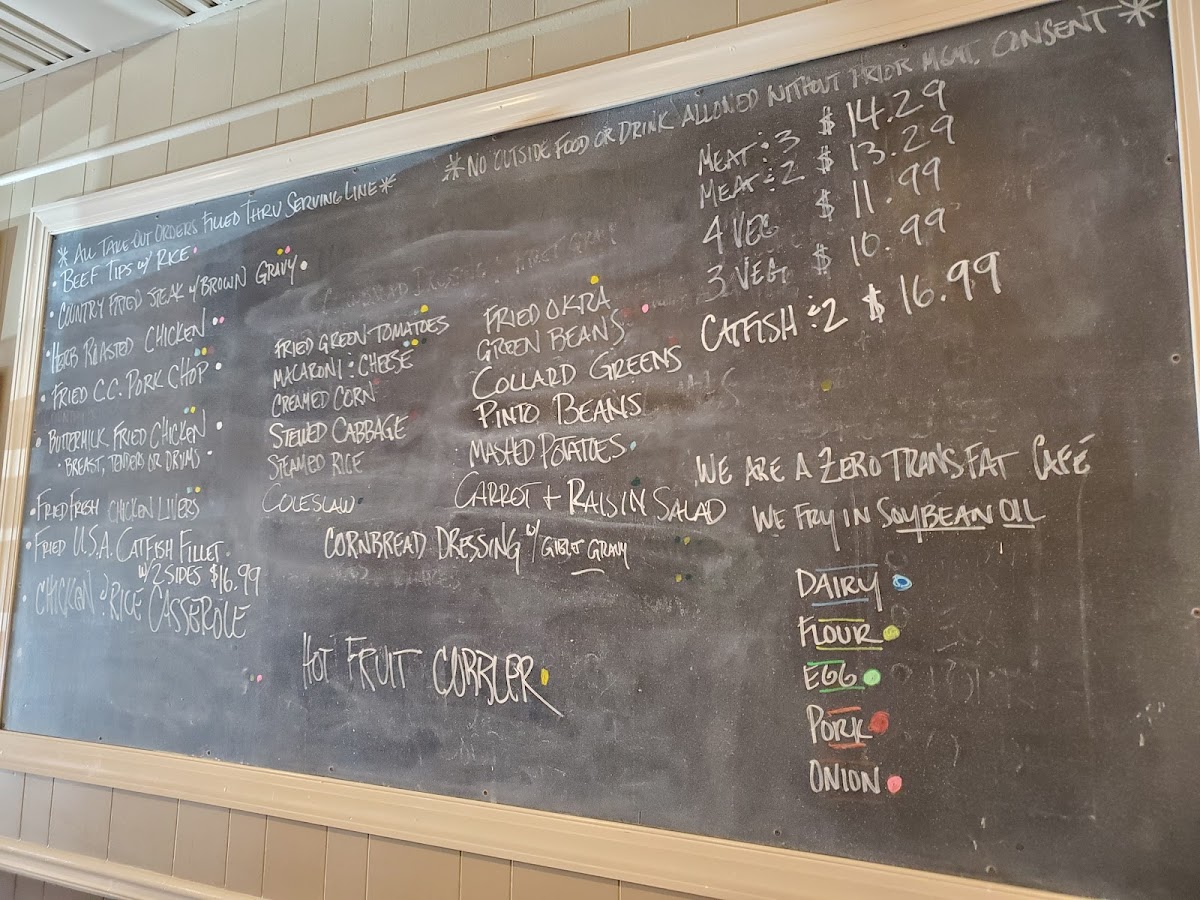 * NO OUTSIDE FOOD OR DRINK ALLOWED WITHOUT PRIOR MGMT. CONSENT *
* ALL TAKE-OUT ORDERS FILLED THRU SERVING LINE *
• BEEF TIPS W/ RICE
• COUNTRY FRIED STEAK W/ BROWN GRAVY
• HERB ROASTED CHICKEN
• FRIED C.C. PORK CHOP
• BUTTERMILK FRIED CHICKEN
• BREAST, TENDERS OR DRUMS
• FRIED FRESH CHICKEN LIVERS
• FRIED U.S.A. CATFISH FILLET
W/ 2 SIDES $16.99
• CHICKEN & RICE CASSEROLE
FRIED GREEN TOMATOES
MACARONI & CHEESE
CREAMED CORN
STEWED CABBAGE
STEAMED RICE
COLESLAW
FRIED OKRA
GREEN BEANS
COLLARD GREENS
PINTO BEANS
MASHED POTATOES
CARROT + RAISIN SALAD
CORNBREAD DRESSING W/ GIBLET GRAVY
HOT FRUIT COBBLER
MEAT & 3 $14.29
MEAT & 2 $13.29
4 VEG $11.99
3 VEG $10.99
CATFISH & 2 $16.99
WE ARE A ZERO TRANS FAT CAFÉ
WE FRY IN SOYBEAN OIL
DAIRY
FLOUR
EGG
PORK
ONION